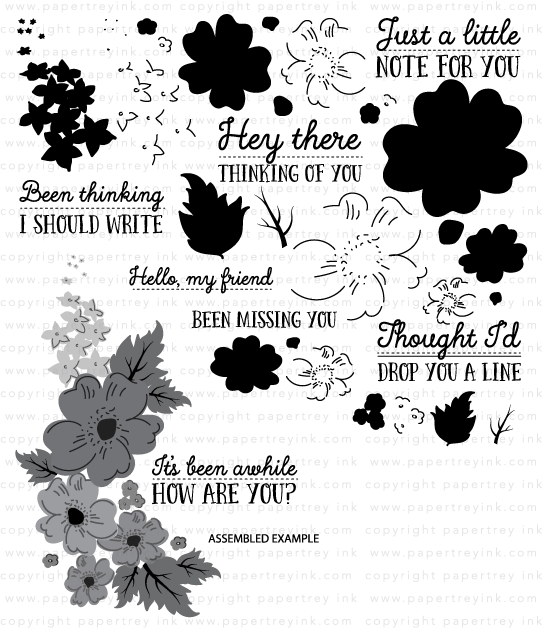 Just a little
NOTE FOR YOU
Hey there
THINKING OF YOU
Been thinking
I SHOULD WRITE
Hello, my friend
BEEN MISSING YOU
Thought I'd
DROP YOU A LINE
It's been awhile
HOW ARE YOU?
ASSEMBLED EXAMPLE
copyright papertrey ink
www.papertreyink.com